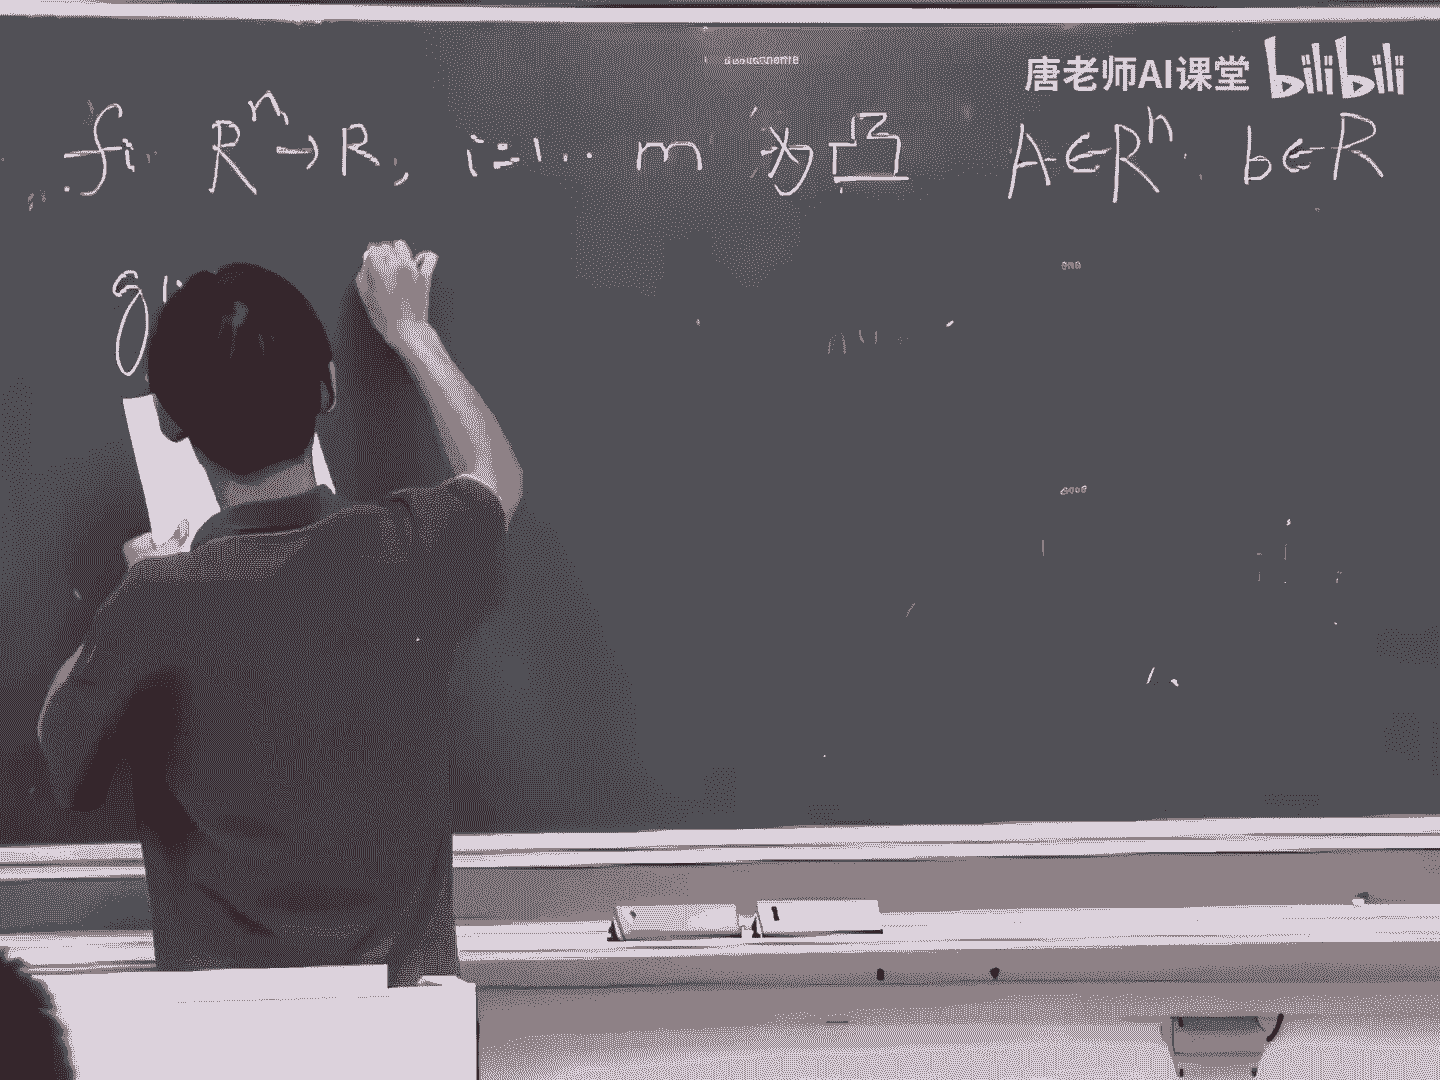 唐老师AI课堂 bilibili
fi R^n→R, i=1.. m 为凸 A∈R^n. b∈R
g